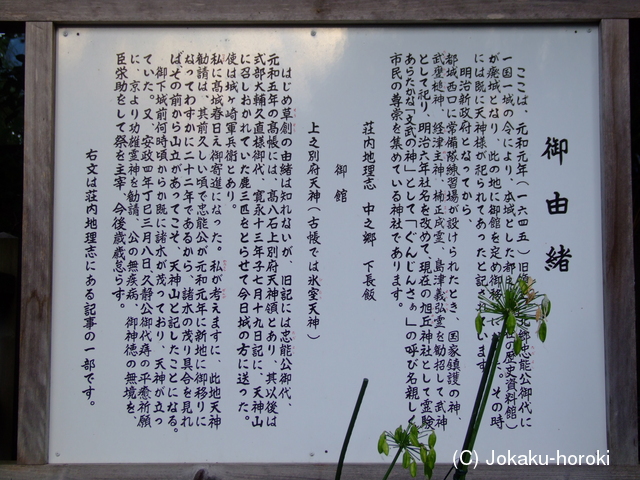 御由緒
ここは、元和元年(一六四五)旧
北郷忠能公御代に
一国一城の令により、本城とした都
が廃城となり、此の地に御館を定め御移
歴史資料館)
た。その時
には既に天神様が祀られてあったと記
います。
明治新政府となってから、
都城西口に常備隊練習場が設けられたとき、国家鎮護の神、
武甕槌神、経津主神、楠正成霊、島津義弘霊を勧招して武神
として祀り、明治六年社名を改めて、現在の旭丘神社として霊験
あらたかな「文武の神」として「ぐんじんさぁ」の呼び名親しく
市民の尊崇を集めている神社であります。
荘内地理志 中之郷 下長飯
御館
上之別府天神(古帳では氷室天神)
はじめ草創の由緒は知れないが、旧記には忠能公御代、
元和五年の高帳には、高八石上別府天神領とあり、其以後は
式部大輔久直様御代、寛永十三年子七月十九日記に、天神山
に召しおかれていた鹿三匹をとらせて今日城の方に送った。
使は城ヶ崎軍兵衛とあり。
私に高城春日え御寄進になった。私が考えますに、此地天神
勧請は、其前久しい頃で忠能公が元和元年に新地に御移りに
なってわずかに二十二年であるから、諸木の茂り具合を見れ
ばその前から山立があってこそ、天神山と記したことになる。
御下城前何時頃からか既に諸木が茂っており、天神が立っ
ていた。又、安政四年丁巳三月八日、久静公御代痔の平癒祈願
に、京より功雄霊神を勧請、公の無疾病、御神徳の無境を、
臣栄助をして祭を主宰、今後歳歳怠らず。
右文は荘内地理志にある記事の一部です。
(C) Jokaku-horoki